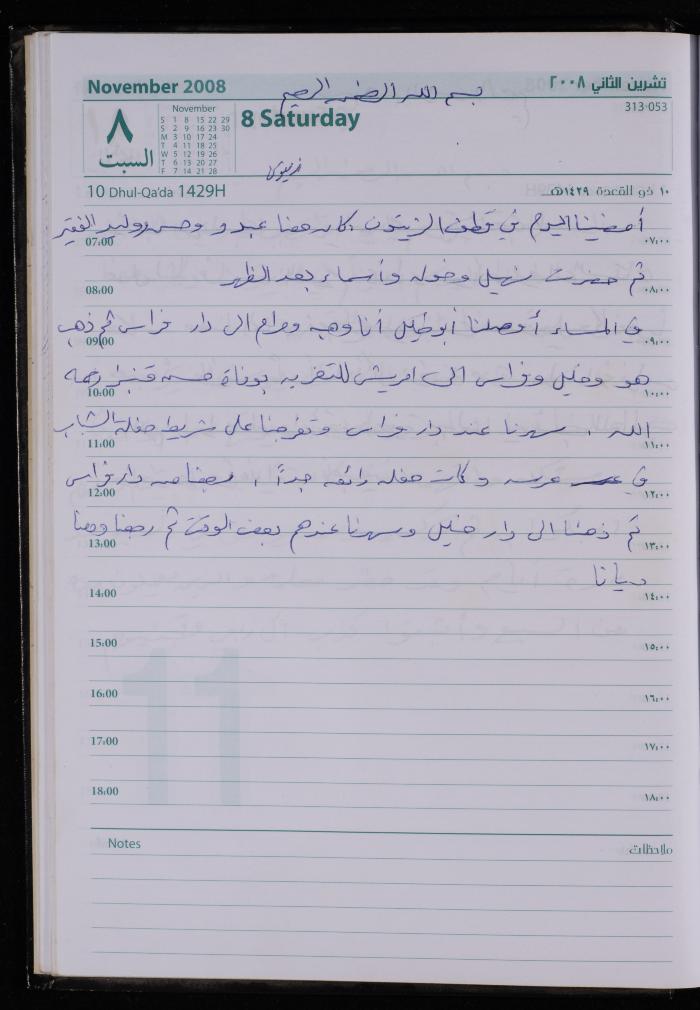 November 2008
تشرين الثاني ٢٠٠٨
بسم الله الرحمن الرحيم
313-053
٨
السبت
November
S 1 8 15 22 29
S 2 9 16 23 30
M 3 10 17 24
T 4 11 18 25
W 5 12 19 26
T 6 13 20 27
F 7 14 21 28
8 Saturday
10 Dhul-Qa'da 1429H
١٠ ذو القعدة ١٤٢٩هـ
أمضينا اليوم في قطف الزيتون كان معنا عبد و وحسن ووليد الفقير
07:00 ٠٧:٠٠
ثم حضرت نهيل وخوله وأسماء بعد الظهر
08:00 ٠٨:٠٠
في المساء أوصلنا أبو خليل أنا وهبه ومرام الى دار فراس ثم ذهب
09:00 ٠٩:٠٠
هو وخليل وفراس الى للتعزيه بوفاة حسن رحمه
10:00 ١٠:٠٠
الله ، سهرنا عند دار فراس وتفرجنا على شريط حفلة الشباب
11:00 ١١:٠٠
في عرسه وكانت حفله رائعه جداً ، من دار فراس
12:00 ١٢:٠٠
ثم ذهبنا الى دار خليل وسهرنا عندهم بعض الوقت ثم رجعنا ومعنا
13:00 ١٣:٠٠
ديانا
14:00 ١٤:٠٠
15:00 ١٥:٠٠
16:00 ١٦:٠٠
17:00 ١٧:٠٠
18:00 ١٨:٠٠
11
Notes ملاحظات